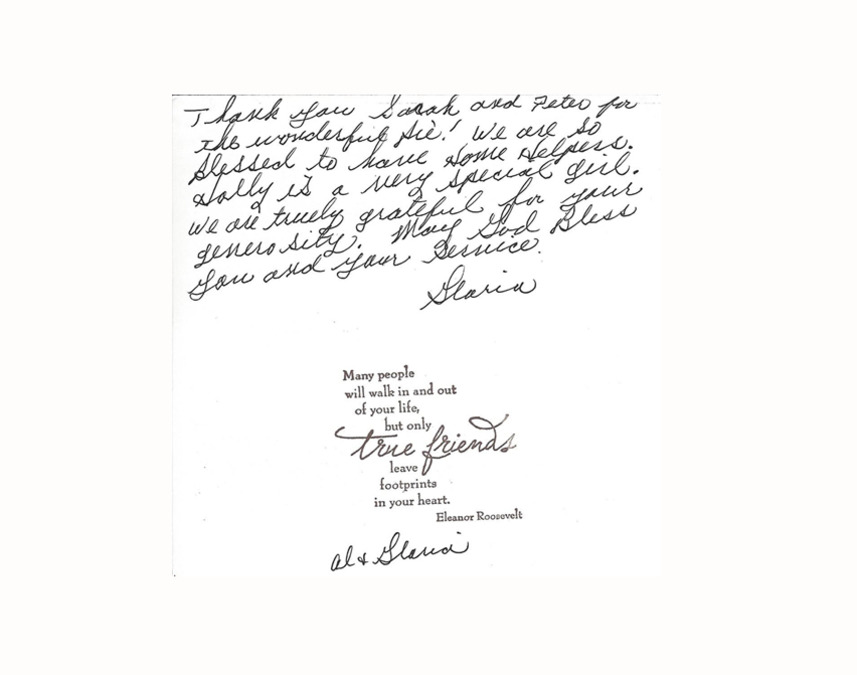 Thank you Sarah and Peter for
the wonderful pie! We are so
blessed to have Home Helpers.
Holly is a very special girl.
We are truely grateful for your
generosity. May God Bless
you and your Service.
Gloria
Many people
will walk in and out
of your life,
but only
true friends
leave
footprints
in your heart.
Eleanor Roosevelt
Al & Gloria